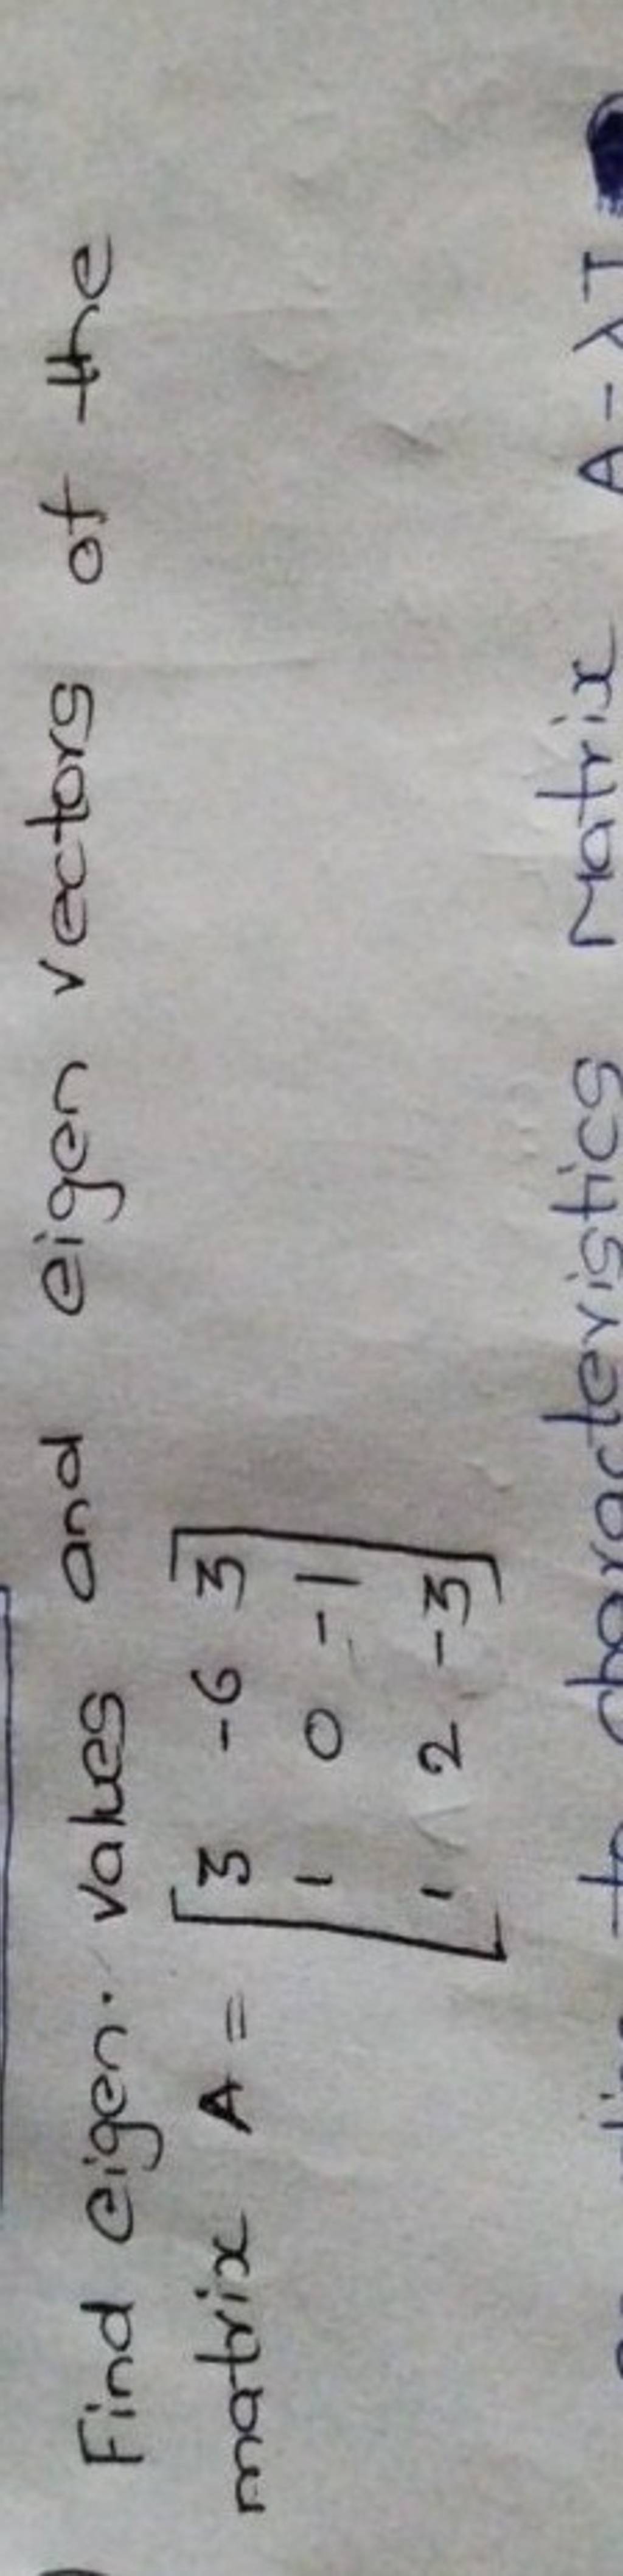 Find eigen. values and eigen vectors of the
matrix A = [ 3 -6 3
1 0 -1
1 2 -3 ]
characteristics Matrix A-λI